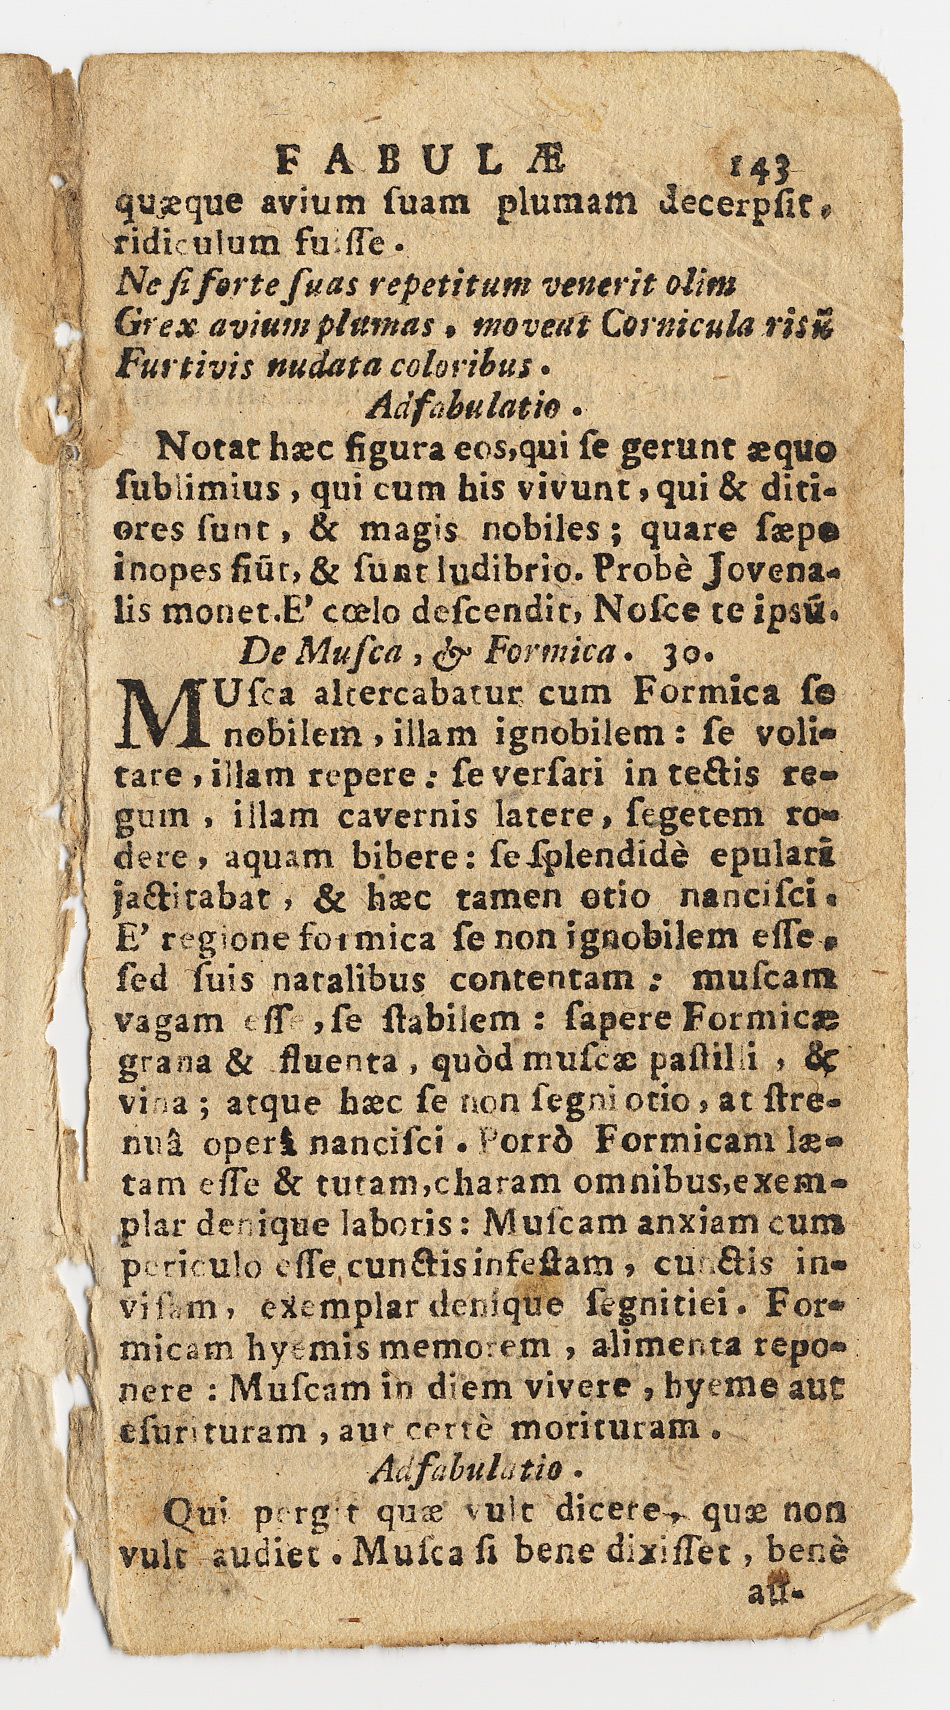 FABULÆ 143
quæque avium ſuam plumam decerpſit,
ridiculum fuiſſe.
Ne ſi forte ſuas repetitum venerit olim
Grex avium plumas, moveat Cornicula risũ
Furtivis nudata coloribus.
Adfabulatio.
Notat hæc figura eos, qui ſe gerunt æquo
ſublimius, qui cum his vivunt, qui & diti-
ores ſunt, & magis nobiles; quare ſæpe
inopes fiũt, & ſunt ludibrio. Probè Jovena-
lis monet. E' cœlo deſcendit, Noſce te ipsũ.
De Muſca, & Formica. 30.
MUſca altercabatur cum Formica ſe
nobilem, illam ignobilem: ſe voli-
tare, illam repere: ſe verſari in tectis re-
gum, illam cavernis latere, ſegetem ro-
dere, aquam bibere: ſe ſplendidè epulari
jactitabat, & hæc tamen otio nanciſci.
E' regione formica ſe non ignobilem eſſe,
ſed ſuis natalibus contentam: muſcam
vagam eſſe, ſe ſtabilem: ſapere Formicæ
grana & fluenta, quòd muſcæ paſtilli, &
vina; atque hæc ſe non ſegni otio, at ſtre-
nuâ operâ nanciſci. Porrò Formicam læ-
tam eſſe & tutam, charam omnibus, exem-
plar denique laboris: Muſcam anxiam cum
periculo eſſe cunctis infeſtam, cunctis in-
viſam, exemplar denique ſegnitiei. For-
micam hyemis memorem, alimenta repo-
nere: Muſcam in diem vivere, hyeme aut
eſurituram, aut certè morituram.
Adfabulatio.
Qui pergit quæ vult dicere, quæ non
vult audiet. Muſca ſi bene dixiſſet, benè
au-